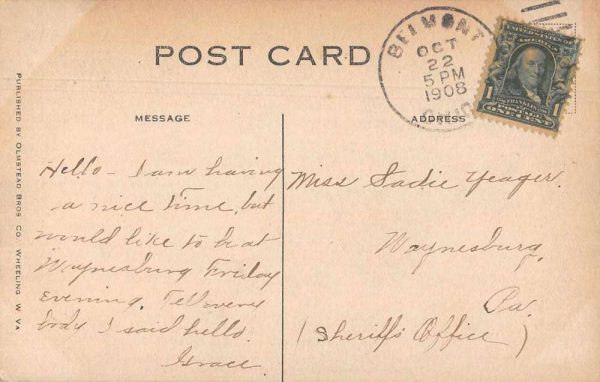 POST CARD
BELMONT
OCT
22
5 PM
1908
OHIO
UNITED STATES OF AMERICA
1
1
POSTAGE
ONE CENT
MESSAGE
ADDRESS
PUBLISHED BY OLMSTEAD BROS CO. WHEELING W. VA
Hello - I am having
a nice time, but
would like to be at
Waynesburg Friday
evening. Tell every
body I said hello.
Grace.
Miss Sadie Yeager.
Waynesburg,
Pa.
(Sheriff's Office)